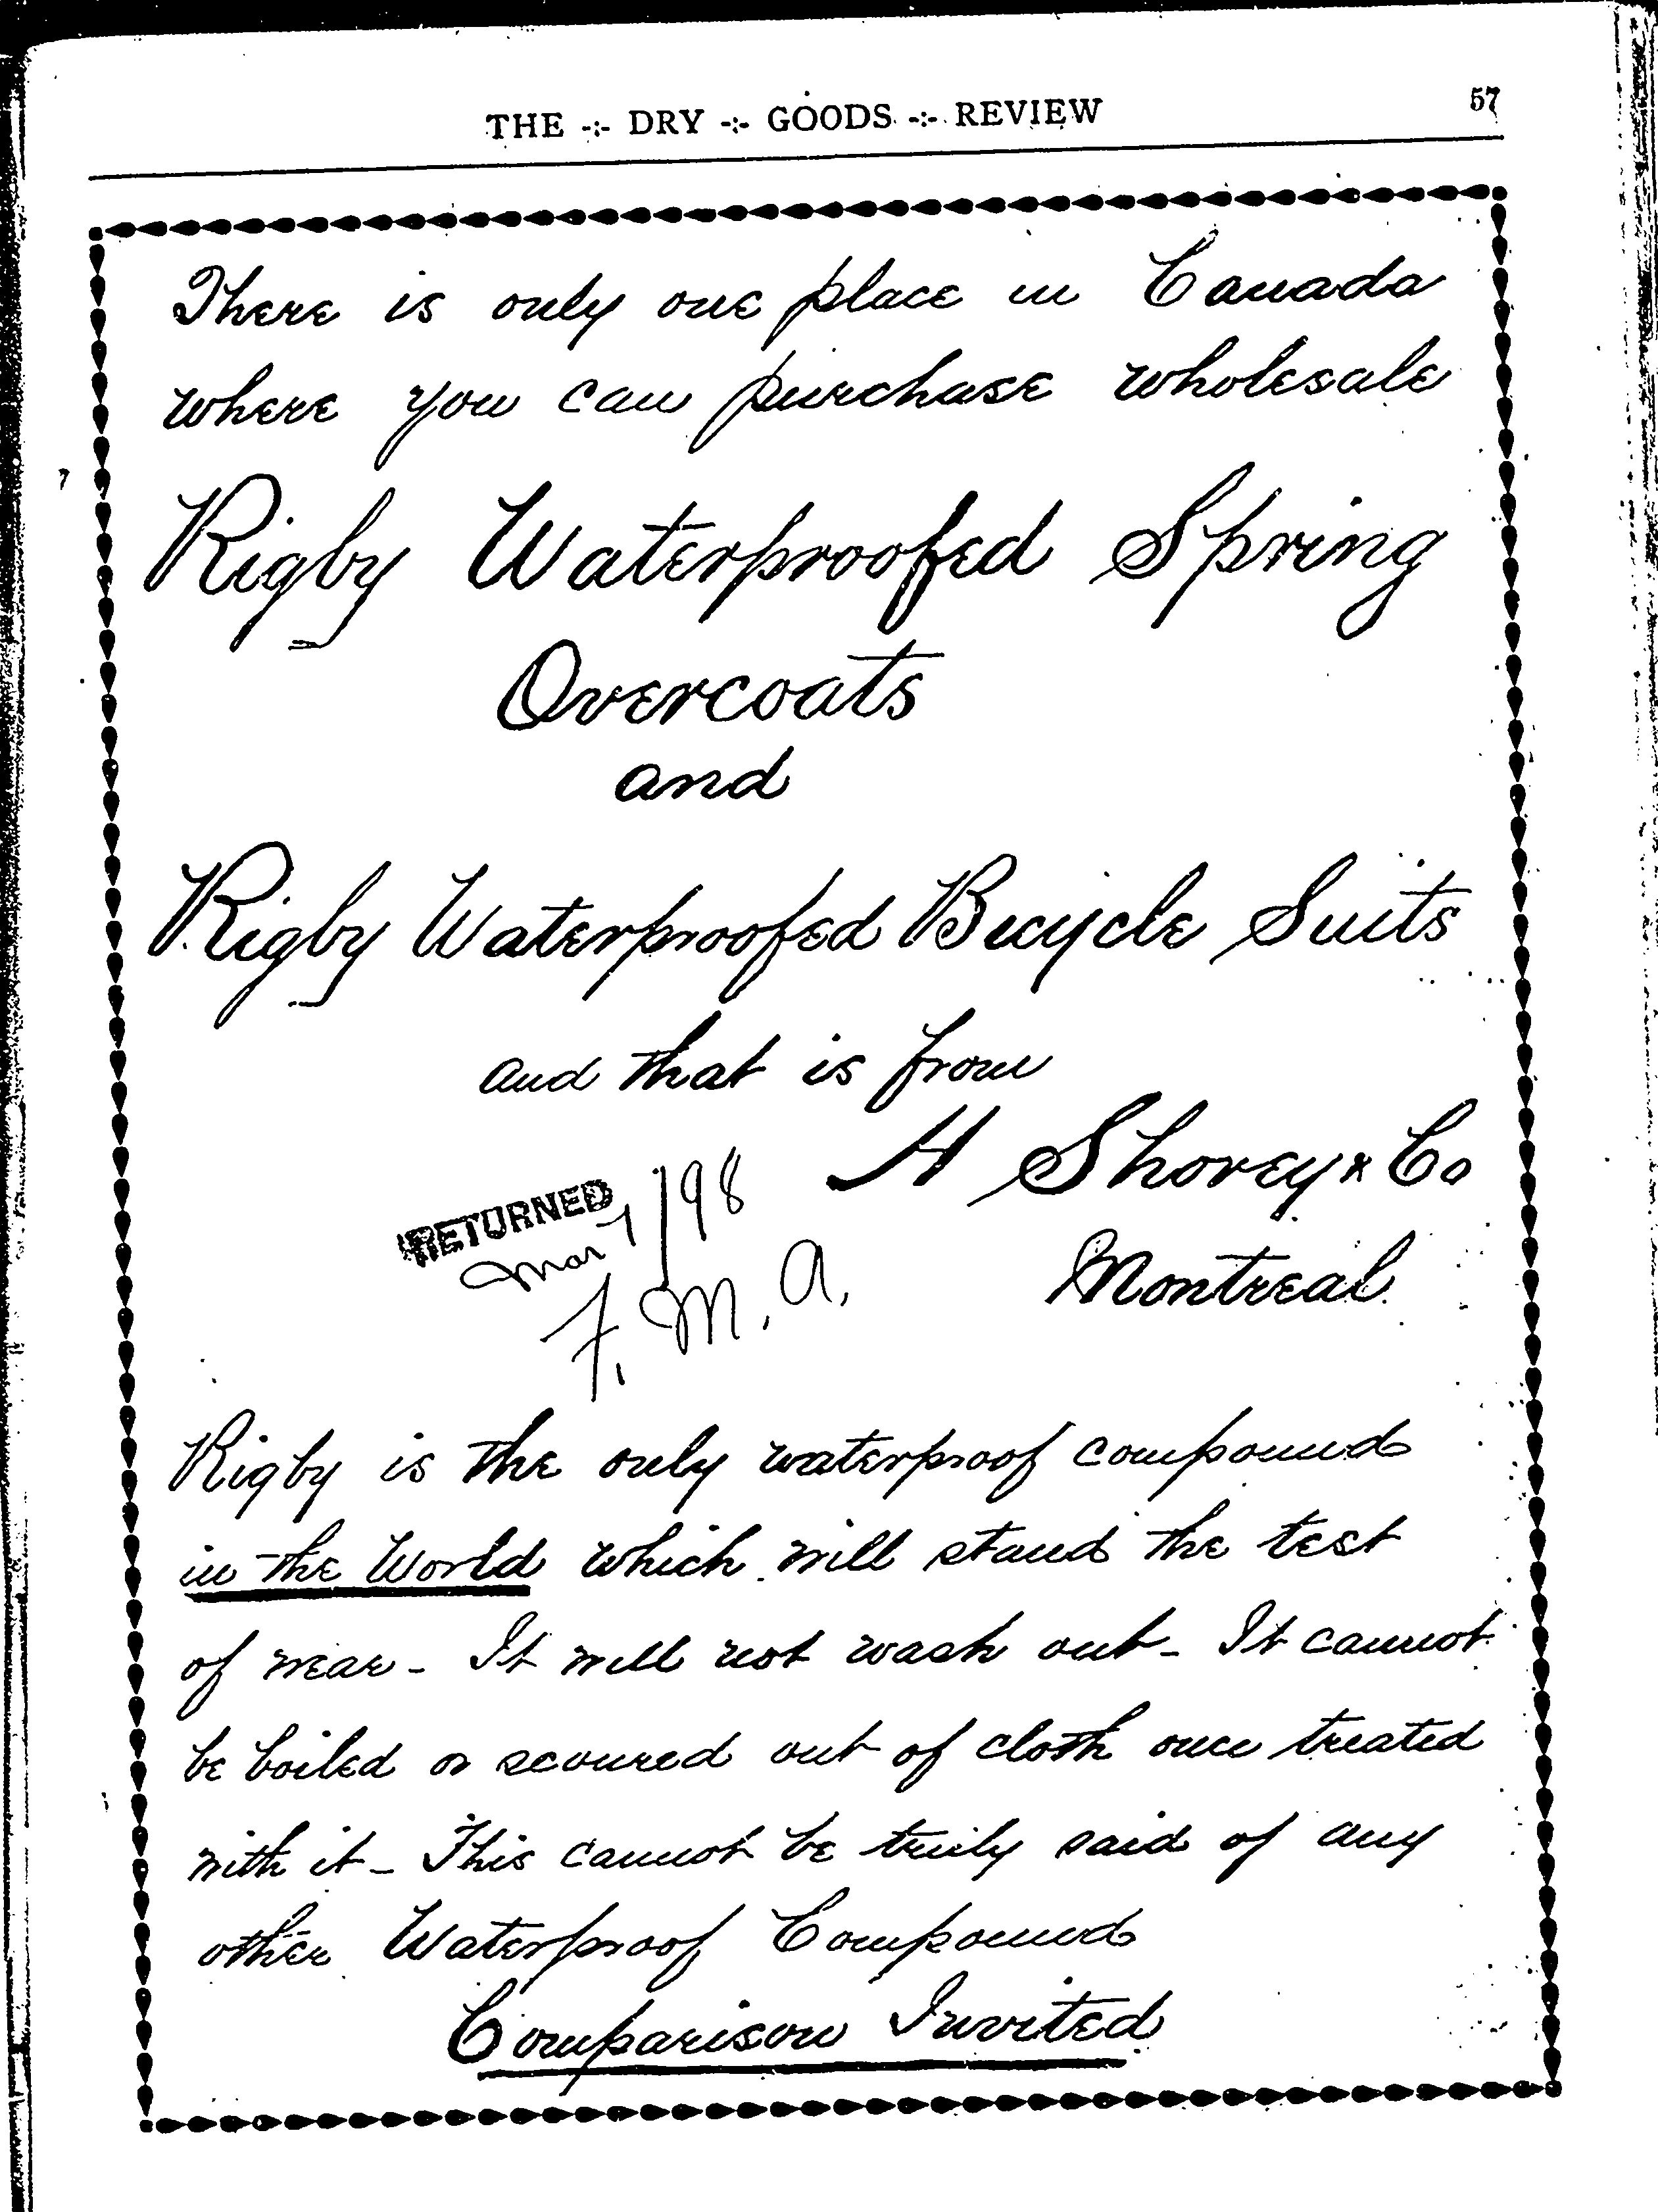 THE -:- DRY -:- GOODS -:- REVIEW 57
There is only one place in Canada
where you can purchase wholesale
Rigby Waterproofed Spring
Overcoats
and
Rigby Waterproofed Bicycle Suits
and that is from
H Shorey & Co
RETURNED
Mar 7/98
F. M. A.
Montreal
Rigby is the only waterproof compound
in the World which will stand the test
of wear - It will not wash out - It cannot
be boiled or scoured out of cloth once treated
with it - This cannot be truly said of any
other Waterproof Compound
Comparison Invited